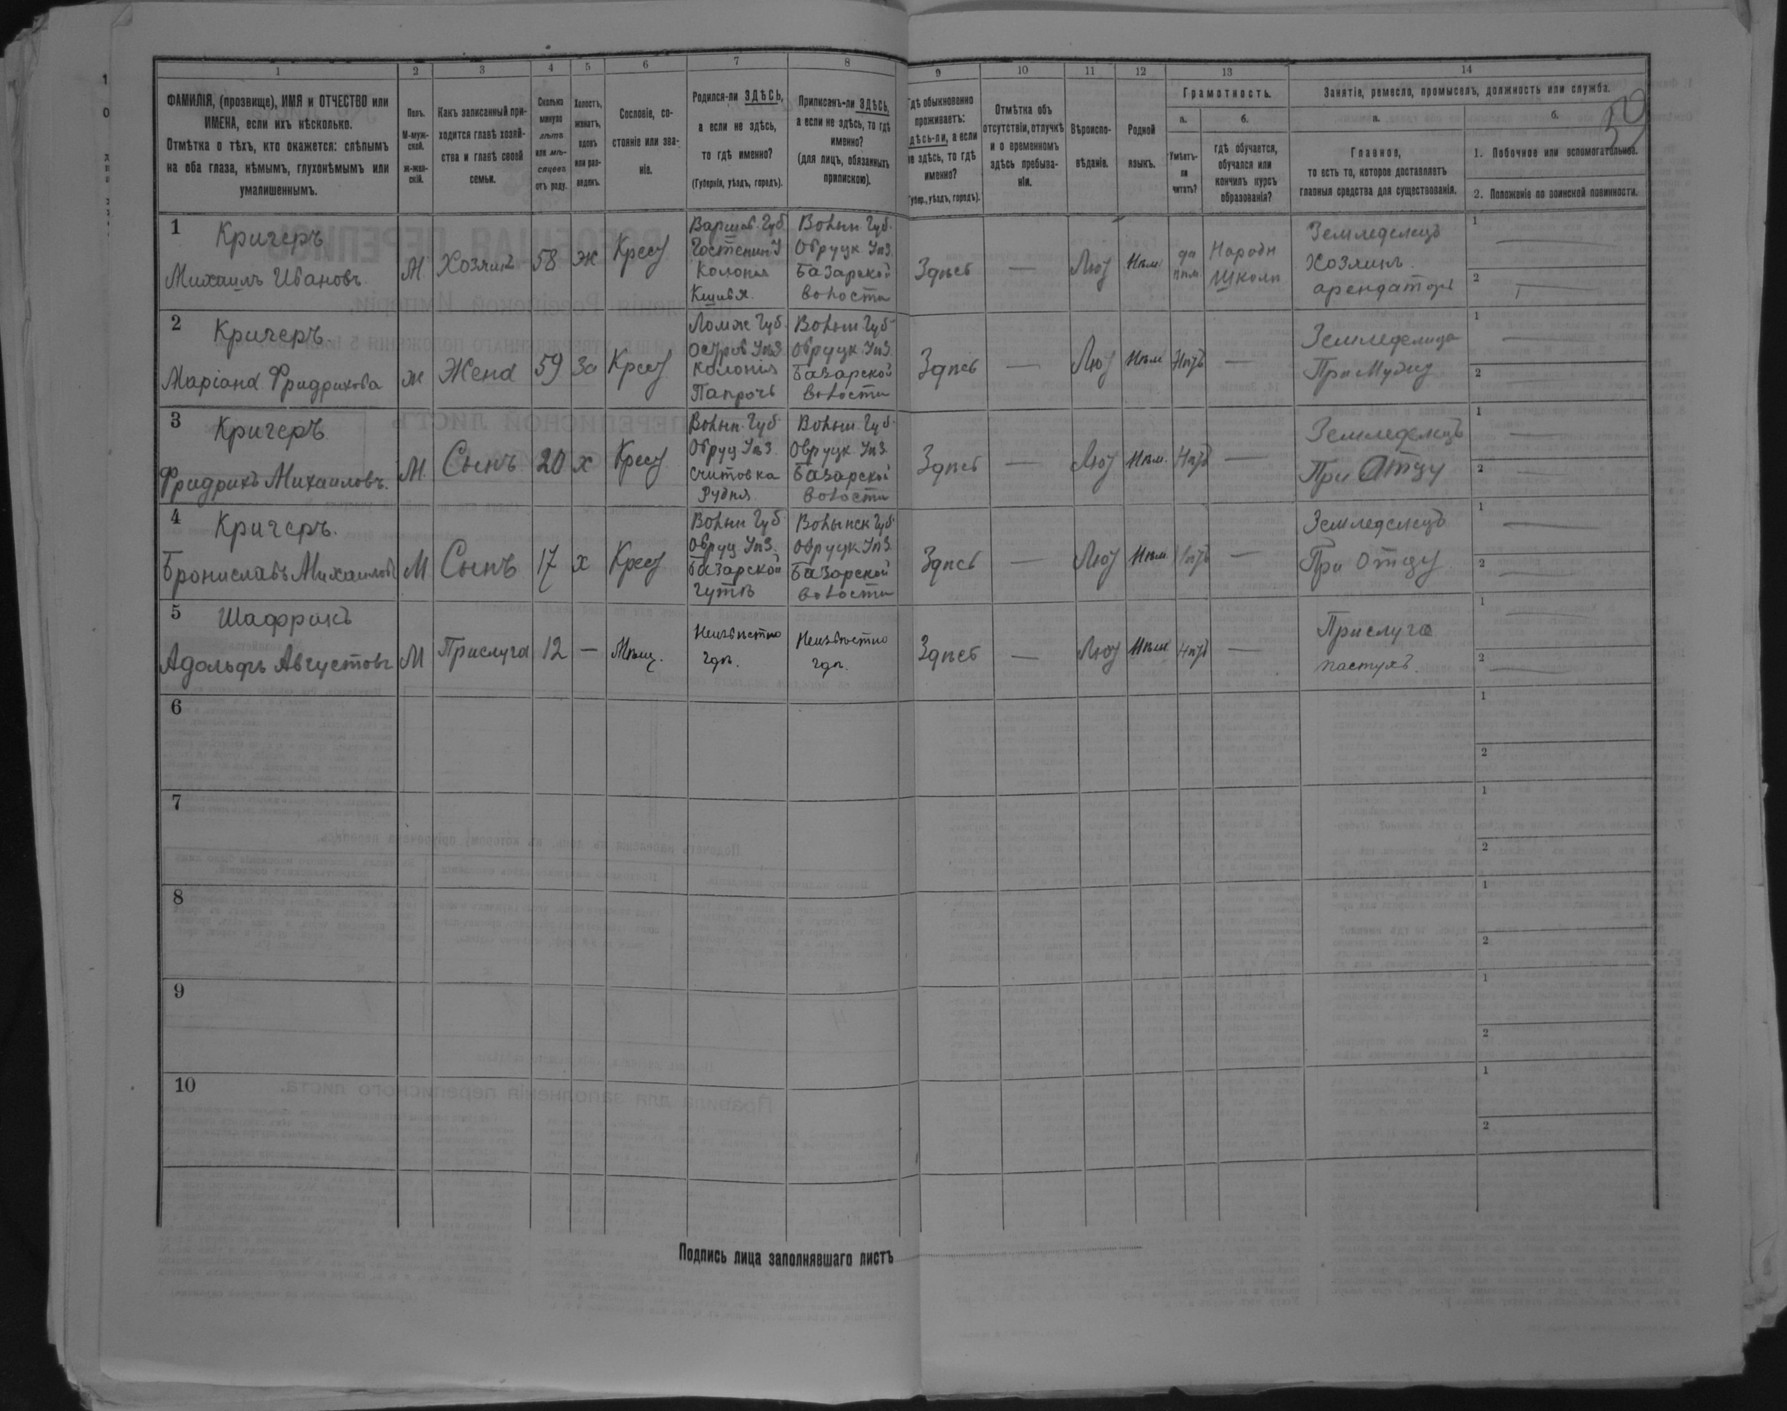 1 2 3 4 5 6 7 8 9 10 11 12 13 14
ФАМИЛІЯ, (прозвище), ИМЯ и ОТЧЕСТВО или
ИМЕНА, если ихъ нѣсколько.
Отмѣтка о тѣхъ, кто окажется: слѣпымъ
на оба глаза, нѣмымъ, глухонѣмымъ или
умалишеннымъ.
Полъ.
М-муж-
ской.
Ж-жен-
скій.
Какъ записанный при-
ходится главѣ хозяй-
ства и главѣ своей
семьи.
Сколько
минуло
лѣтъ
или мѣ-
сяцевъ
отъ роду.
Холостъ,
женатъ,
вдовъ
или раз-
веденъ.
Сословіе, со-
стояніе или зва-
ніе.
Родился-ли ЗДѢСЬ,
а если не здѣсь,
то гдѣ именно?
(Губернія, уѣздъ, городъ).
Приписанъ-ли ЗДѢСЬ,
а если не здѣсь, то гдѣ
именно?
(для лицъ, обязанныхъ
припискою).
Гдѣ обыкновенно
проживаетъ:
здѣсь-ли, а если
не здѣсь, то гдѣ
именно?
(Губер., уѣздъ, городъ).
Отмѣтка объ
отсутствіи, отлучкѣ
и о временномъ
здѣсь пребыва-
ніи.
Вѣроиспо-
вѣданіе.
Родной
языкъ.
Грамотность.
а.
Умѣетъ-
ли
читать?
б.
гдѣ обучается,
обучался или
кончилъ курсъ
образованія?
Занятіе, ремесло, промыселъ, должность или служба.
а.
Главное,
то есть то, которое доставляетъ
главныя средства для существованія.
б.
1. Побочное или вспомогательное.
2. Положеніе по воинской повинности.
1
Кричеръ
Михаилъ Ивановъ
М Хозяинъ 58 ж Крест
Варшав. Губ
Колонія
Волын Губ.
Овруцк Уѣз
Базарской
волости
Здѣсь — Лют Нѣм.
Народн
Школѣ
Земледелецъ
Хозяинъ
арендаторъ
1 —
2 —
2
Кричеръ.
Маріана Фридрихова
ж Жена 59 За Крест
Ломж Губ
Остров Уѣз.
Колонія
Папрочь
Волын Губ
Овруцк Уѣз.
Базарской
волости
Здѣсь — Лют Нѣм Нѣтъ —
При Мужу
1 —
2 —
3
Кричеръ
Фридрихъ Михаиловъ.
М. Сынъ 20 х Крест
Волын. Губ
Овруц Уѣз.
Рудня
Волын Губ
Овруцк Уѣз.
Базарской
волости
Здѣсь — Лют Нѣм. Нѣтъ —
Земледелецъ
При Отцу
1 —
2 —
4
Кричеръ.
Брониславъ Михаиловъ
М Сынъ 17 х Крест
Волын Губ
Овруц Уѣз.
Базарской
Гутѣ
Волынск Губ
Овруцк Уѣз
Базарской
волости
Здѣсь — Лют Нѣм Нѣтъ —
Земледелецъ
При Отцу
1 —
2 —
5
Шафрикъ
Адольфъ Августовъ
М Прислуга 12 — Мѣщ.
Неизвѣстно
гдѣ.
Неизвѣстно
гдѣ.
Здѣсь — Лют Нѣм Нѣтъ —
Прислуга
пастухъ.
1 —
2 —
6
1
2
7
1
2
8
1
2
9
1
2
10
1
2
Подпись лица заполнявшаго листъ